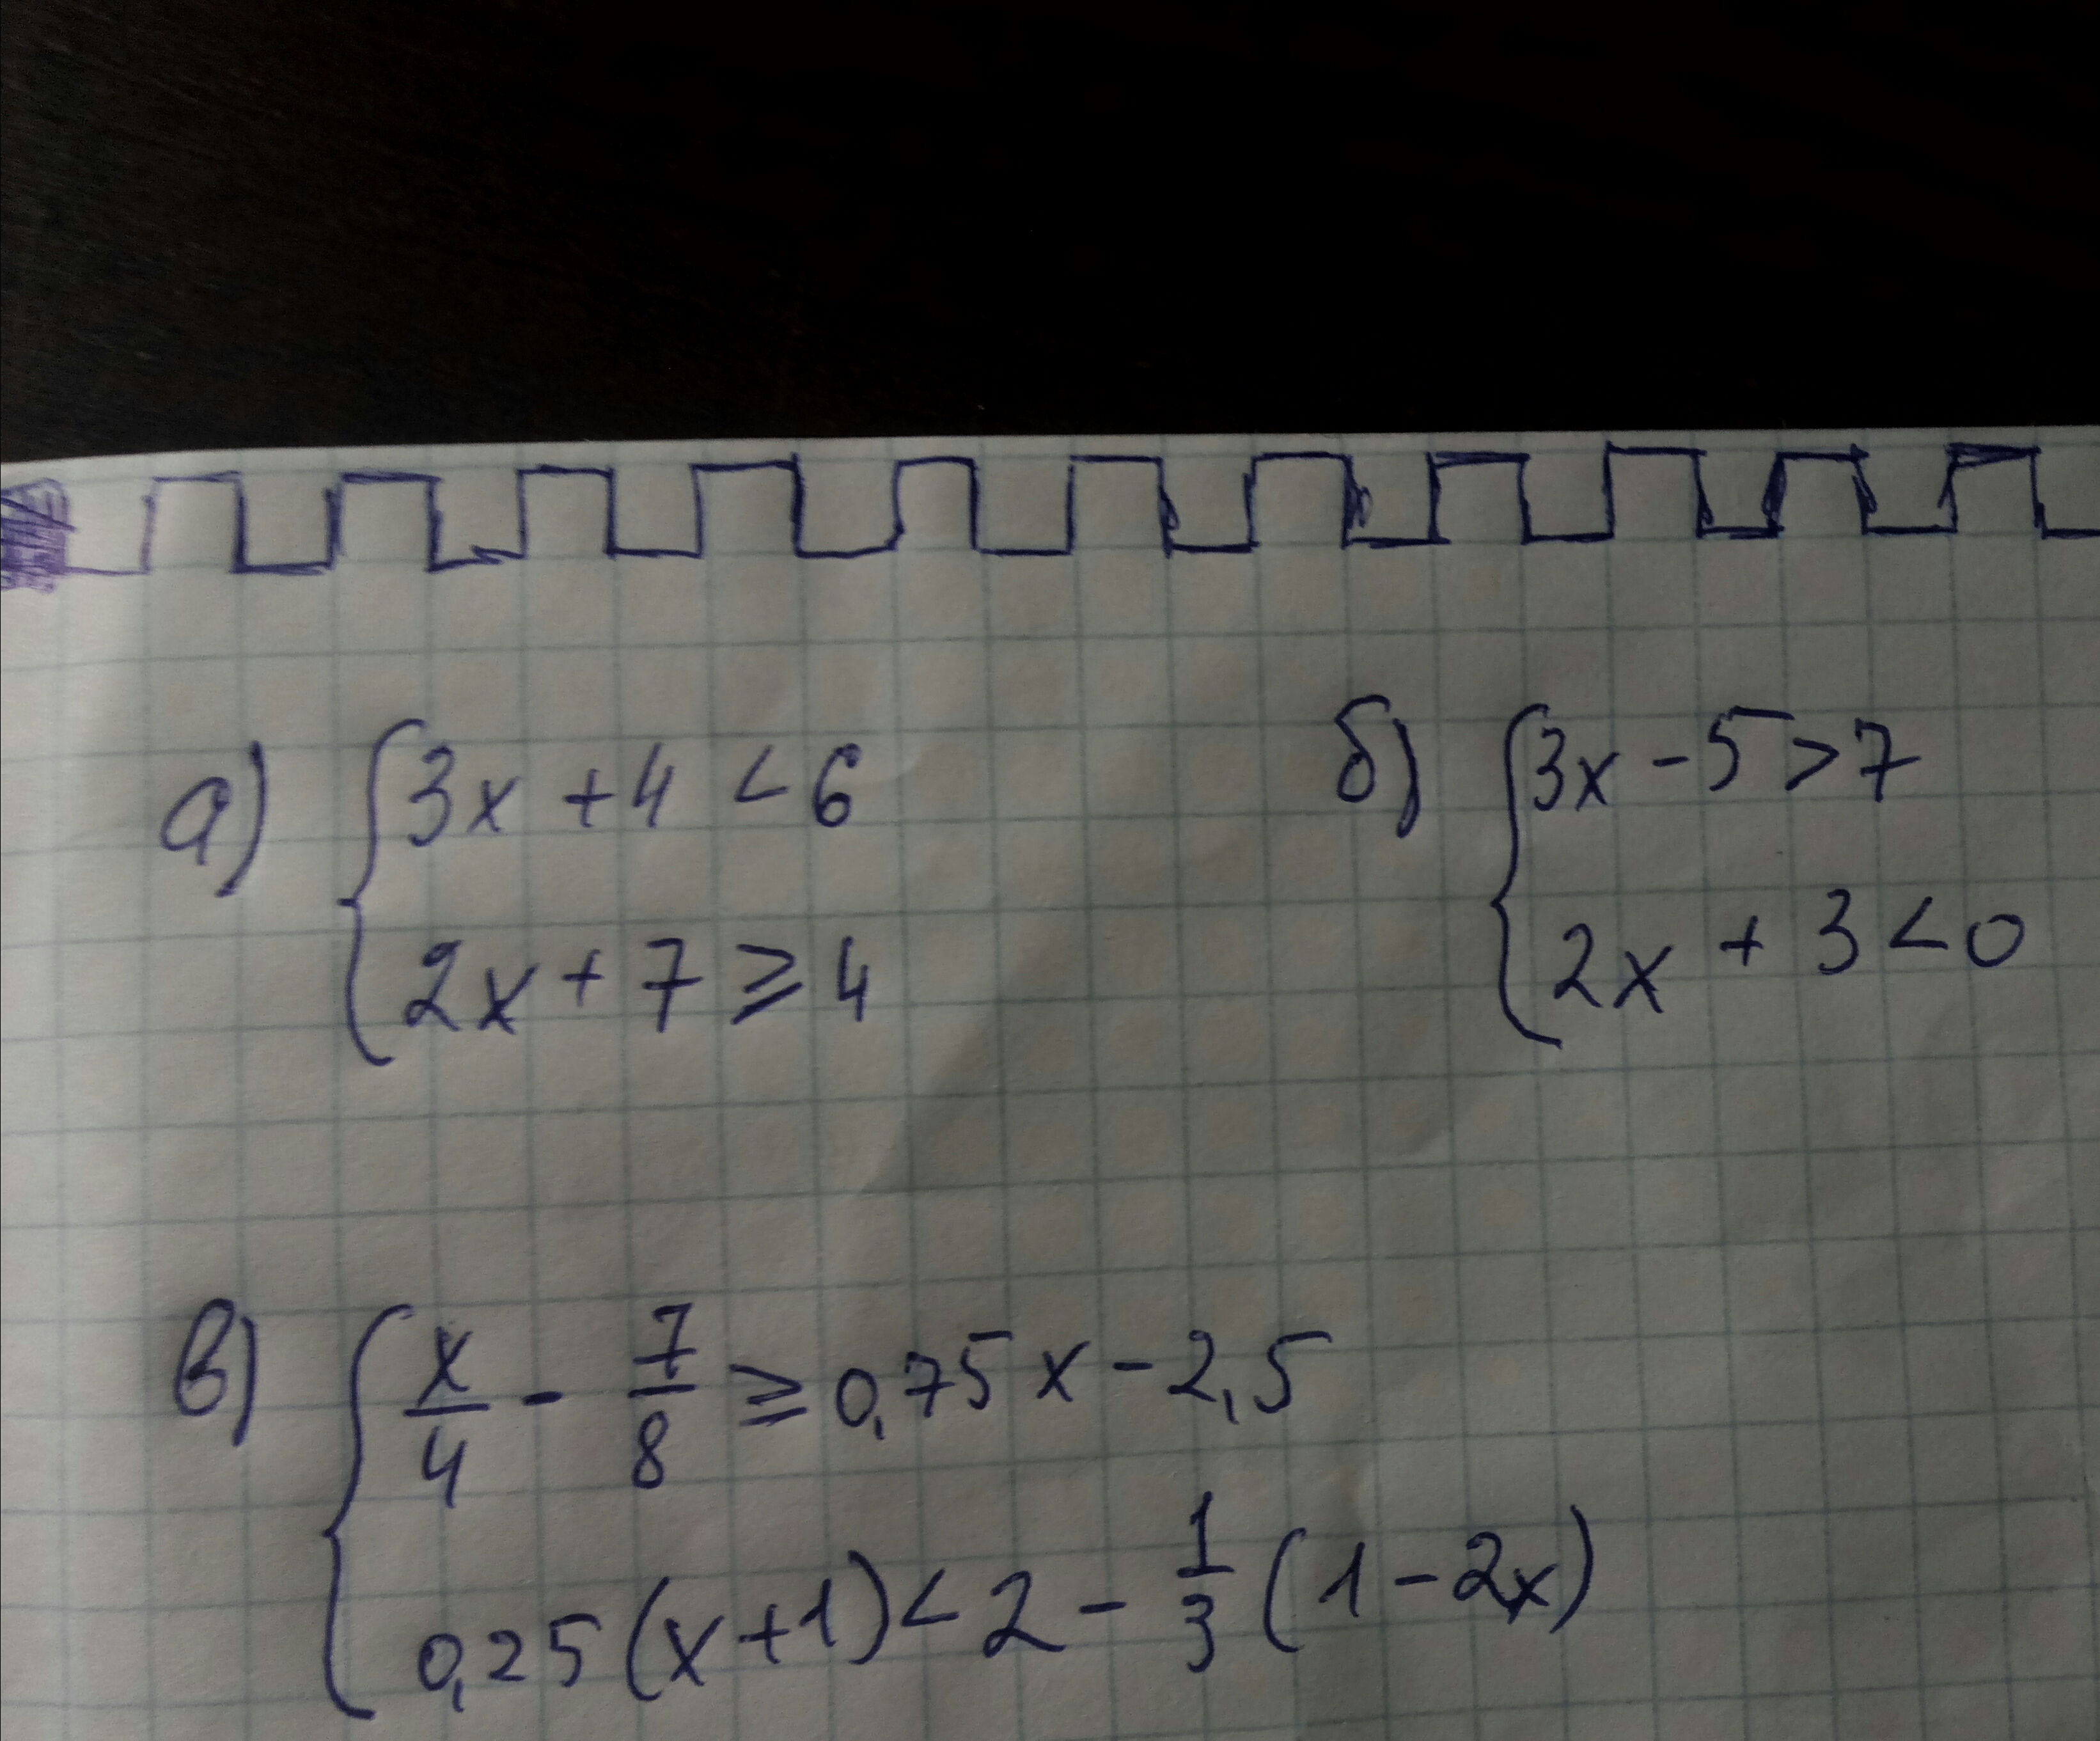 а) { 3x + 4 < 6
2x + 7 ⩾ 4
б) { 3x - 5 > 7
2x + 3 < 0
в) { x/4 - 7/8 ⩾ 0,75x - 2,5
0,25(x+1) < 2 - 1/3 (1 - 2x)